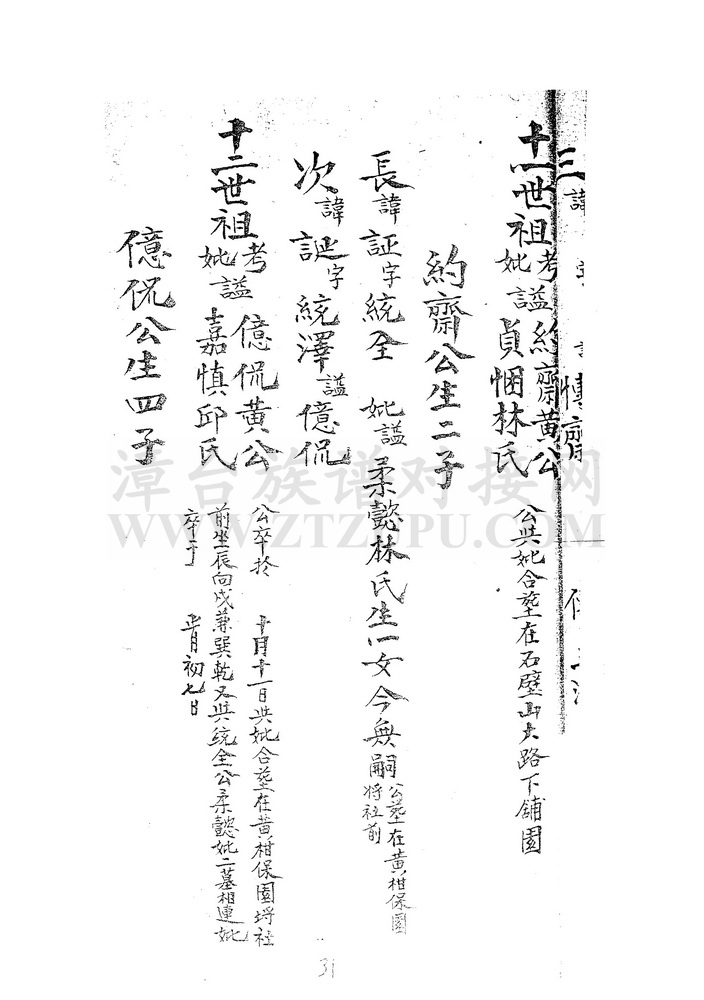 三諱 字 慎齋
十一世祖考謚約齋黃公
妣謚貞悃林氏
公共妣合塟在石壁山大路下舖園
約齋公生二子
長諱証字統全 妣謚柔懿林氏生一女今無嗣
公塟在黃柑保園
将社前
次諱誕字統澤謚億侃
十二世祖考謚億侃黃公
妣謚嘉慎邱氏
公卒於 十月十一日共妣合塟在黃柑保園埒社
前坐辰向戌兼巽乾又共統全公柔懿妣二墓相連妣
卒于 正月初七日
億侃公生四子
漳台族谱对接网
WWW.ZTZUPU.COM
31